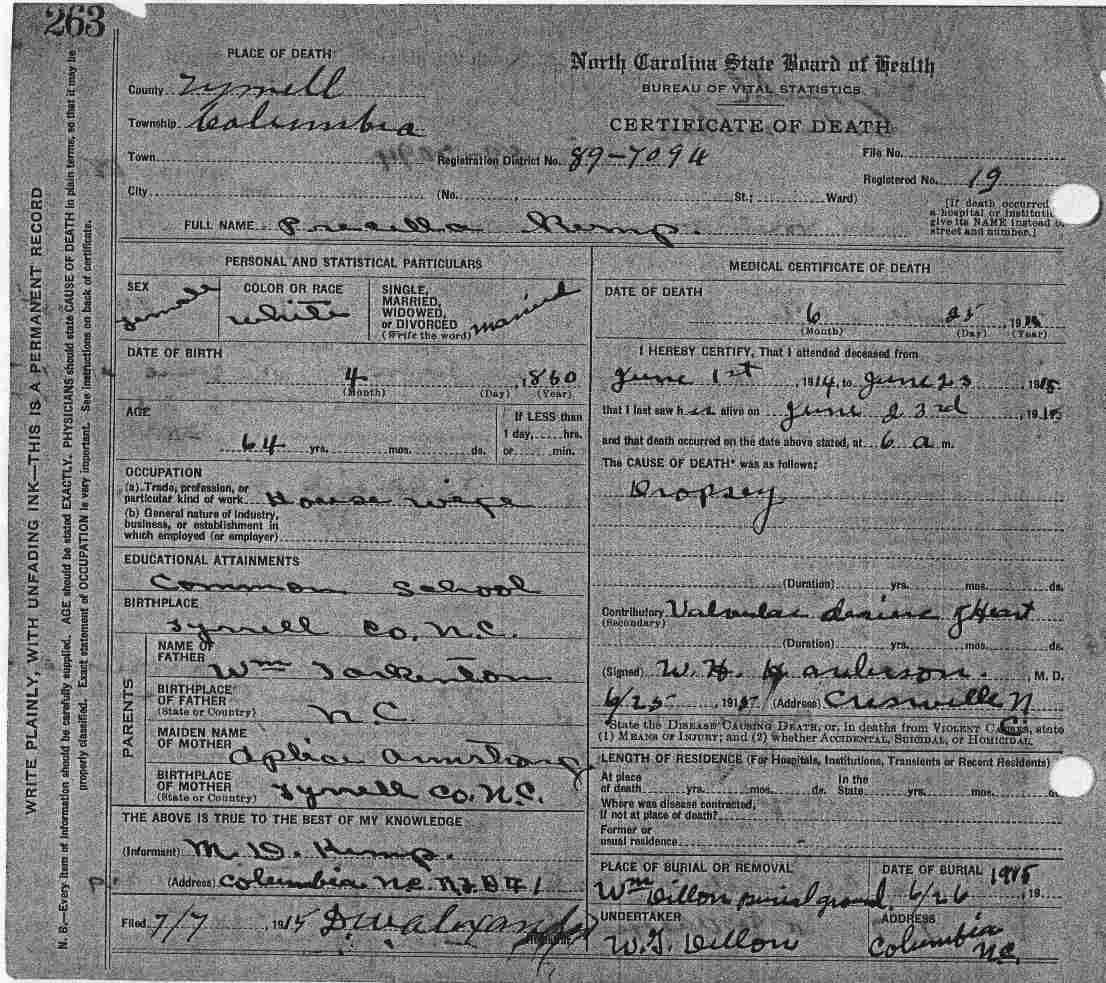 263
PLACE OF DEATH
North Carolina State Board of Health
BUREAU OF VITAL STATISTICS
CERTIFICATE OF DEATH
County Tyrrell
Township Columbia
Town
Registration District No. 89-7094
File No.
Registered No. 19
City (No. , St.; Ward)
[If death occurred
a hospital or
give its NAME instead
street and number.]
FULL NAME Kemp.
PERSONAL AND STATISTICAL PARTICULARS
SEX
female
COLOR OR RACE
white
SINGLE,
MARRIED,
WIDOWED,
or DIVORCED
(Write the word) married
DATE OF BIRTH
4 , 1860
(Month) (Day) (Year)
AGE
64 yrs. mos. ds.
If LESS than
1 day, hrs.
or min.
OCCUPATION
(a) Trade, profession, or
particular kind of work House wife
(b) General nature of industry,
business, or establishment in
which employed (or employer)
EDUCATIONAL ATTAINMENTS
Common School
BIRTHPLACE
Tyrrell Co. N.C.
PARENTS
NAME OF
FATHER
Wm Tarkenton
BIRTHPLACE
OF FATHER
(State or Country)
N.C.
MAIDEN NAME
OF MOTHER
Armstrong
BIRTHPLACE
OF MOTHER
(State or Country)
Tyrrell Co. N.C.
THE ABOVE IS TRUE TO THE BEST OF MY KNOWLEDGE
(Informant) M. D. Kemp.
(Address) Columbia N.C. # 1
Filed 7/7 , 1915
MEDICAL CERTIFICATE OF DEATH
DATE OF DEATH
6 25 191
(Month) (Day) (Year)
I HEREBY CERTIFY, That I attended deceased from
June 1st , 1914, to June 23 1915
that I last saw her alive on June 23rd , 1915
and that death occurred on the date above stated, at 6 a m.
The CAUSE OF DEATH* was as follows:
Dropsey
(Duration) yrs. mos. ds.
Contributory Valvular disease of Heart
(Secondary)
(Duration) yrs. mos. ds.
(Signed) W. H. Handerson. M. D.
6/25 1915 (Address) Creswille N C
*State the DISEASE CAUSING DEATH, or, in deaths from VIOLENT CAUSES, state
(1) MEANS OF INJURY; and (2) whether ACCIDENTAL, SUICIDAL, or HOMICIDAL.
LENGTH OF RESIDENCE (For Hospitals, Institutions, Transients or Recent Residents)
At place
of death yrs. mos. ds.
In the
State yrs. mos.
Where was disease contracted,
if not at place of death?
Former or
usual residence
PLACE OF BURIAL OR REMOVAL
Wm Dillon burial ground
DATE OF BURIAL 1915
6/26 19
UNDERTAKER
W. T. Dillon
ADDRESS
Columbia
N.C.
WRITE PLAINLY, WITH UNFADING INK—THIS IS A PERMANENT RECORD
N. B.—Every item of information should be carefully supplied. AGE should be stated EXACTLY. PHYSICIANS should state CAUSE OF DEATH in plain terms, so that it may be
properly classified. Exact statement of OCCUPATION is very important. See instructions on back of certificate.